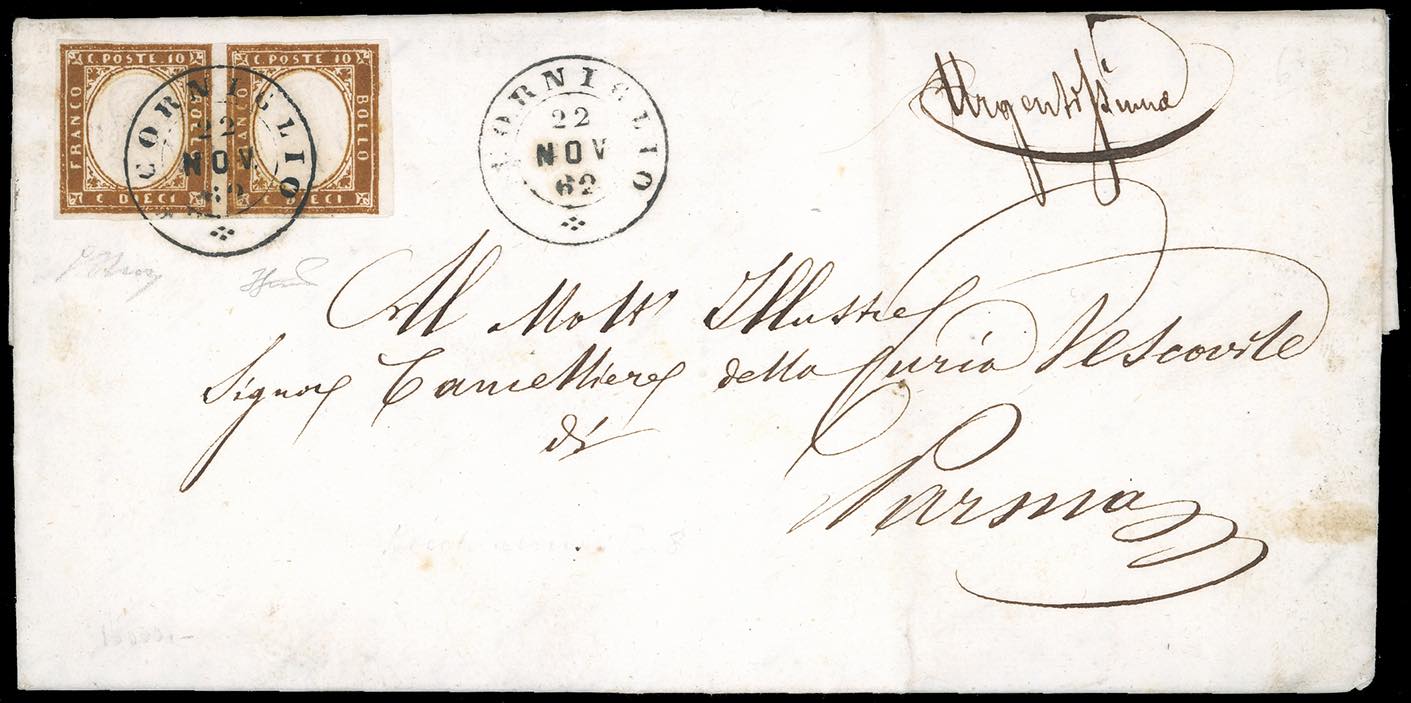 C. POSTE 10 C. POSTE 10
FRANCO BOLLO FRANCO BOLLO
C. DIECI C. DIECI
CORNIGLIO
22
NOV
62
CORNIGLIO
22
NOV
62
Urgentissima
Al Molt' Illustre
Signor Cancelliere della Curia Vescovile
di
Parma